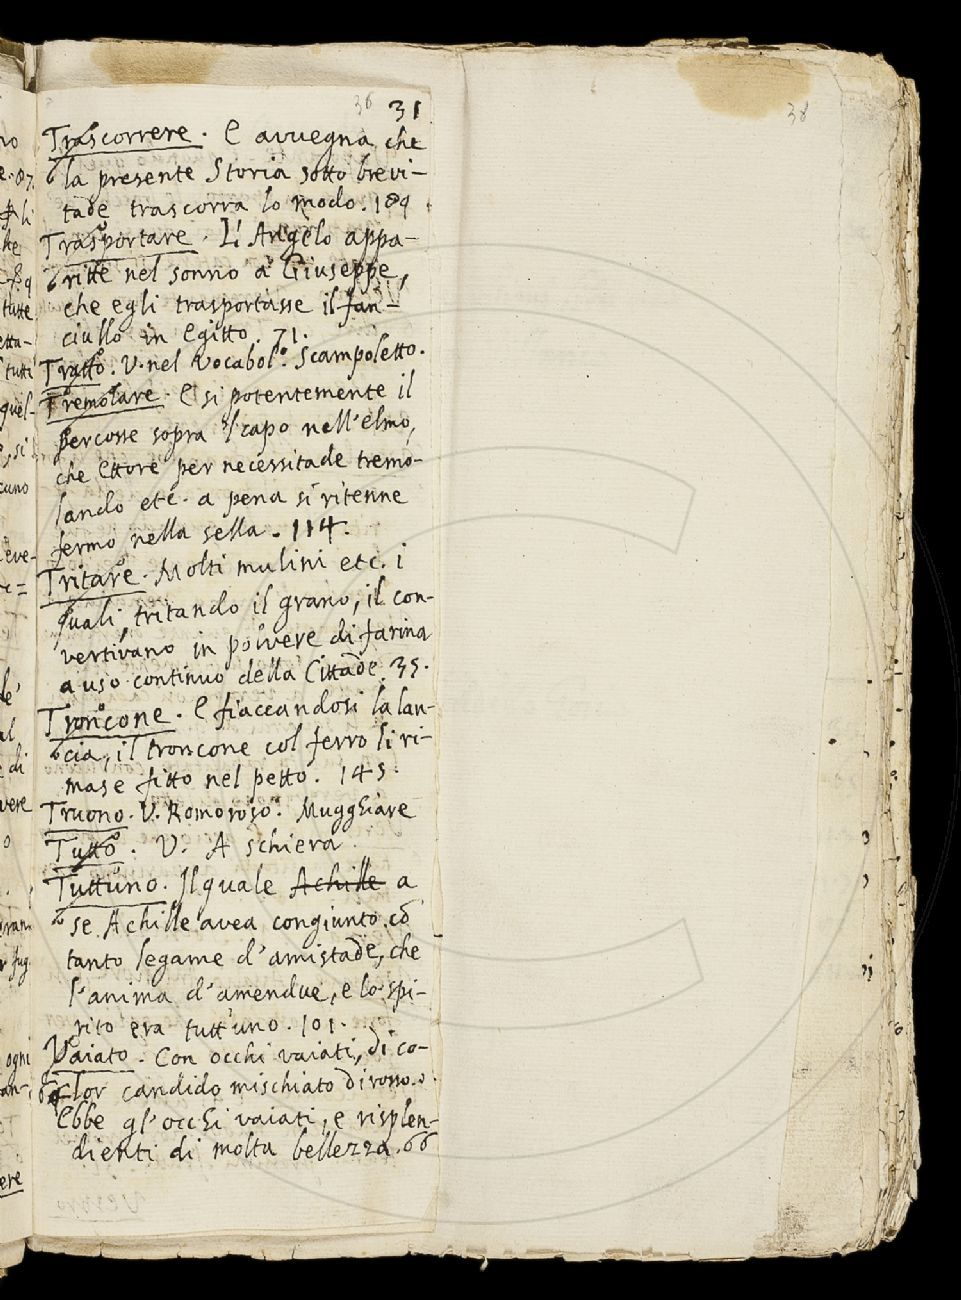 38 31
38
Trascorrere. E avvegna che
la presente Storia sotto brevi-
tade trascorra lo modo. 189
Trasportare. L'Angelo appa-
ritte nel sonno a Giuseppe,
che egli trasportasse il fan-
ciullo in Egitto. 71.
Tratto. V. nel Vocabol.º Scampoletto.
Tremolare. E si potentemente il
percosse sopra 'l capo nell'elmo,
che Ettore per necessitade tremo-
lando etc. a pena si ritenne
fermo nella sella. 114.
Tritare. Molti mulini etc. i
quali, tritando il grano, il con-
vertivano in polvere di farina
a uso continuo della Cittade. 35.
Troncone. E fiaccandosi la lan-
cia, il troncone col ferro li ri-
mase fitto nel petto. 145.
Truono. V. Romoroso. Mugghiare
Tutto. V. A schiera.
Tuttuno. Il quale Achille a
se Achille avea congiunto cō
tanto legame d'amistade, che
l'anima d'amendue, e lo spi-
rito era tutt'uno. 101.
Vaiato. Con occhi vaiati, di co-
lor candido mischiato di rosso.
Ebbe gl'occhi vaiati, e risplen-
dienti di molta bellezza. 66